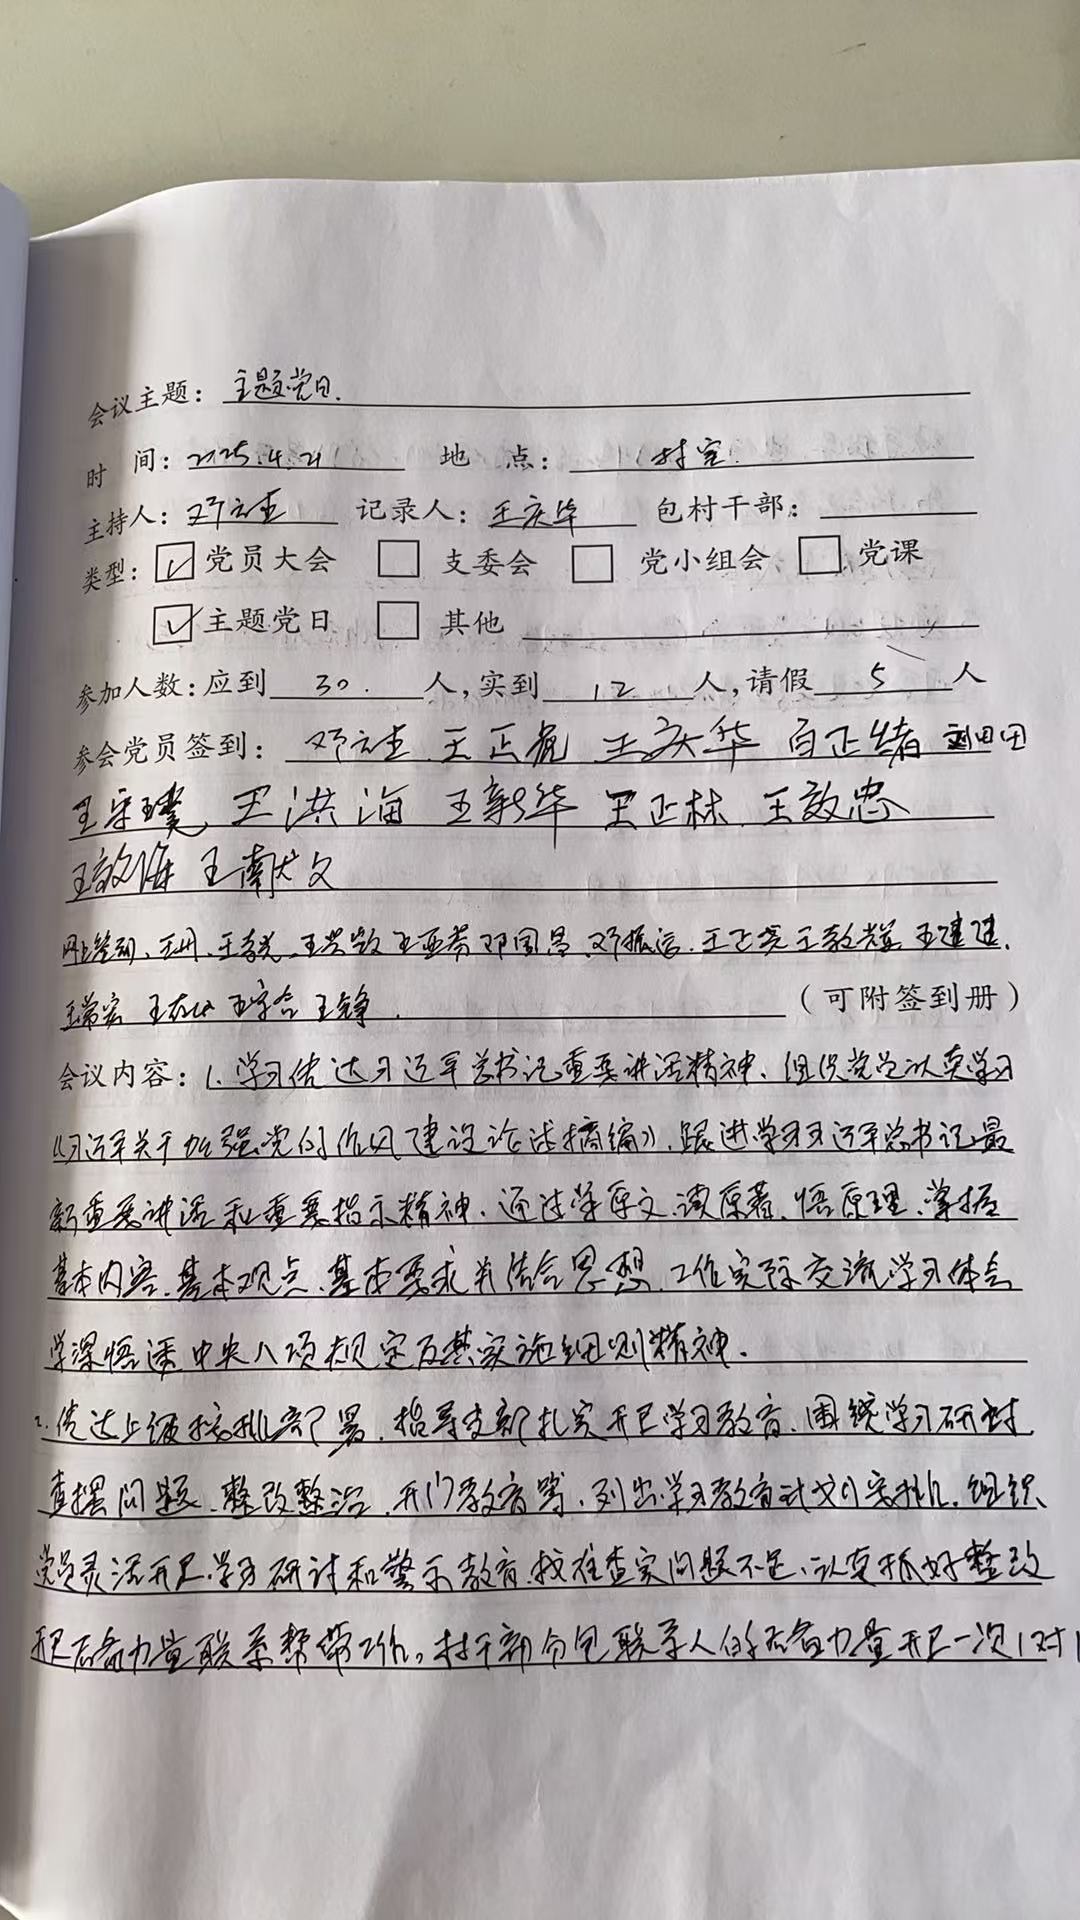 会议主题：主题党日.
时 间：2025.4.21 地 点：村室.
主持人：邓立 记录人：王庆华 包村干部：
类型：☑党员大会 □支委会 □党小组会 □党课
☑主题党日 □其他
参加人数：应到 30. 人，实到 12 人，请假 5 人
参会党员签到：邓 王正彪 王庆华 白正绪 刘田田
王守璞 王洪海 王新华 王正林 王敬忠
王敬海 王南文
王 王 王亚 邓国昌、邓振 王正 王敬 王建建.
王常宏 王 王守合 王铮.（可附签到册）
会议内容：1.学习传达习近平总书记重要讲话精神、组织党员认真学习
《习近平关于加强党的作风建设论述摘编》，跟进学习习近平总书记最
新重要讲话和重要指示精神，通过学原文、读原著、悟原理，掌握
基本内容、基本观点、基本要求并结合思想、工作实际交流学习体会
学深悟透中央八项规定及其实施细则精神。
2.传达上级 部署，指导支部扎实开展学习教育，围绕学习研讨、
查摆问题、整改整治、开门教育等，列出学习教育计划安排，组织
党员灵活开展学习研讨和警示教育，找准查实问题不足，认真抓好整改
开展后备力量联系帮带工作。村干部分包联系人的后备力量开展一次1对1